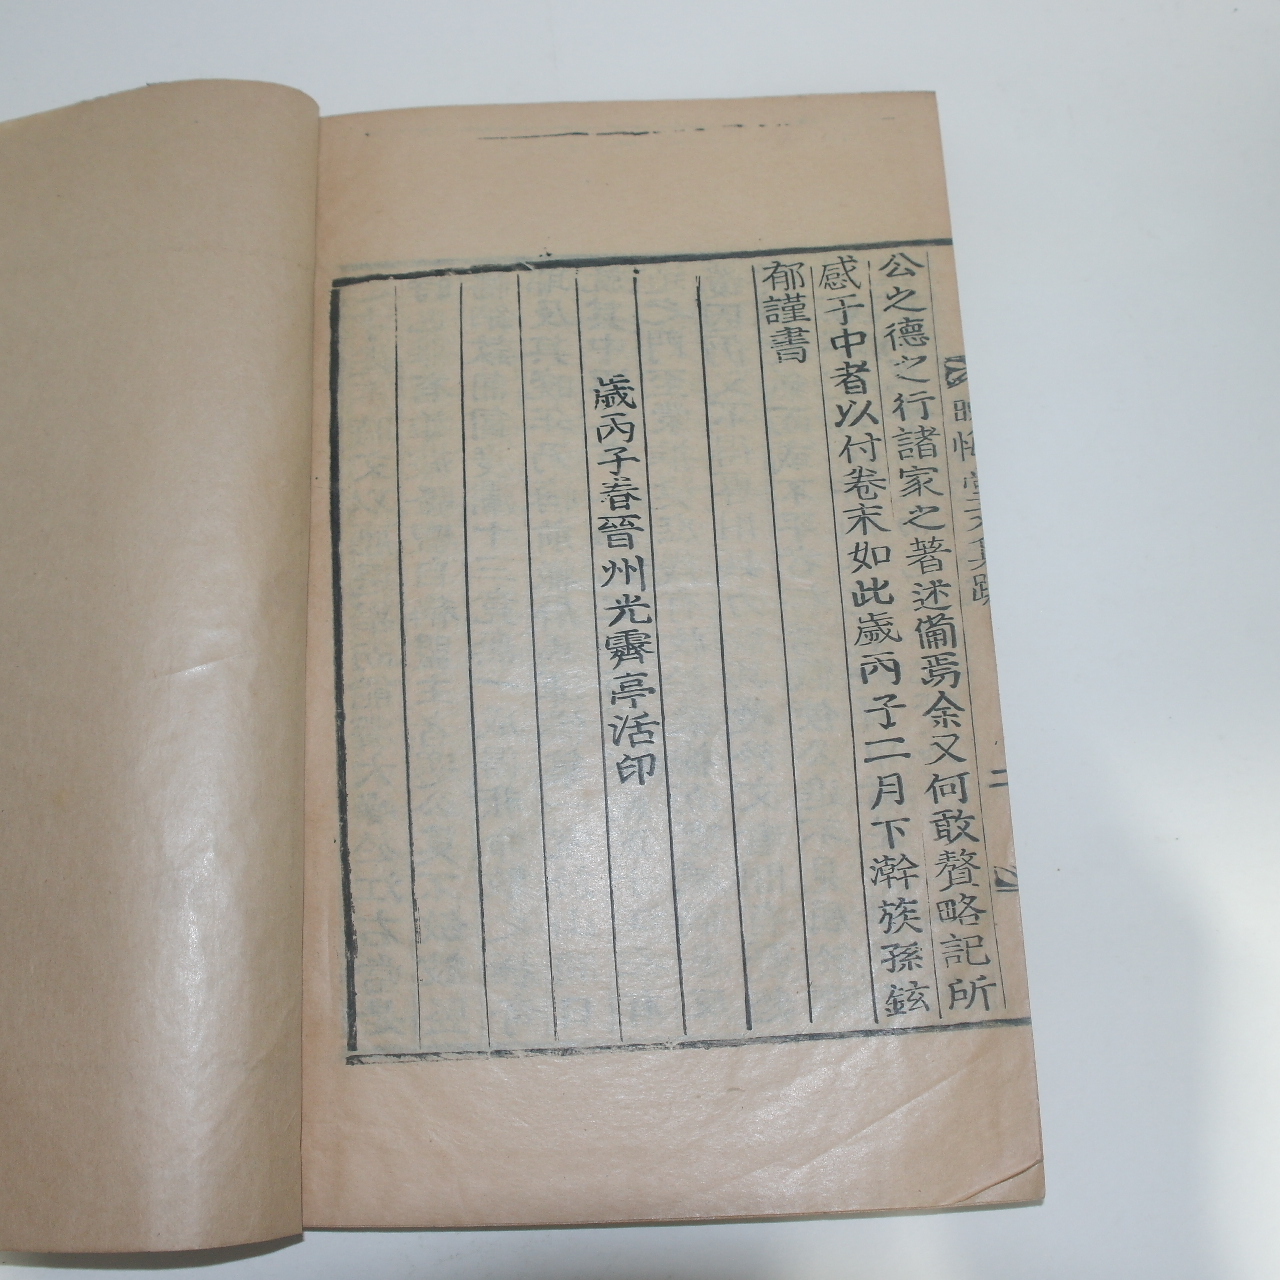 公之德之行諸家之著述備焉余又何敢贅略記所
感于中者以付卷末如此歲丙子二月下澣族孫鉉
郁謹書
歲丙子春晉州光霽亭活印
悔堂文集跋
二